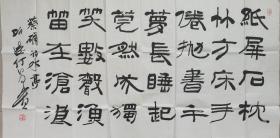 紙屏石枕
竹方床手
倦抛書午
夢長睡起
莞然成獨
笑數聲漁
笛在滄浪
蔡確詩水亭